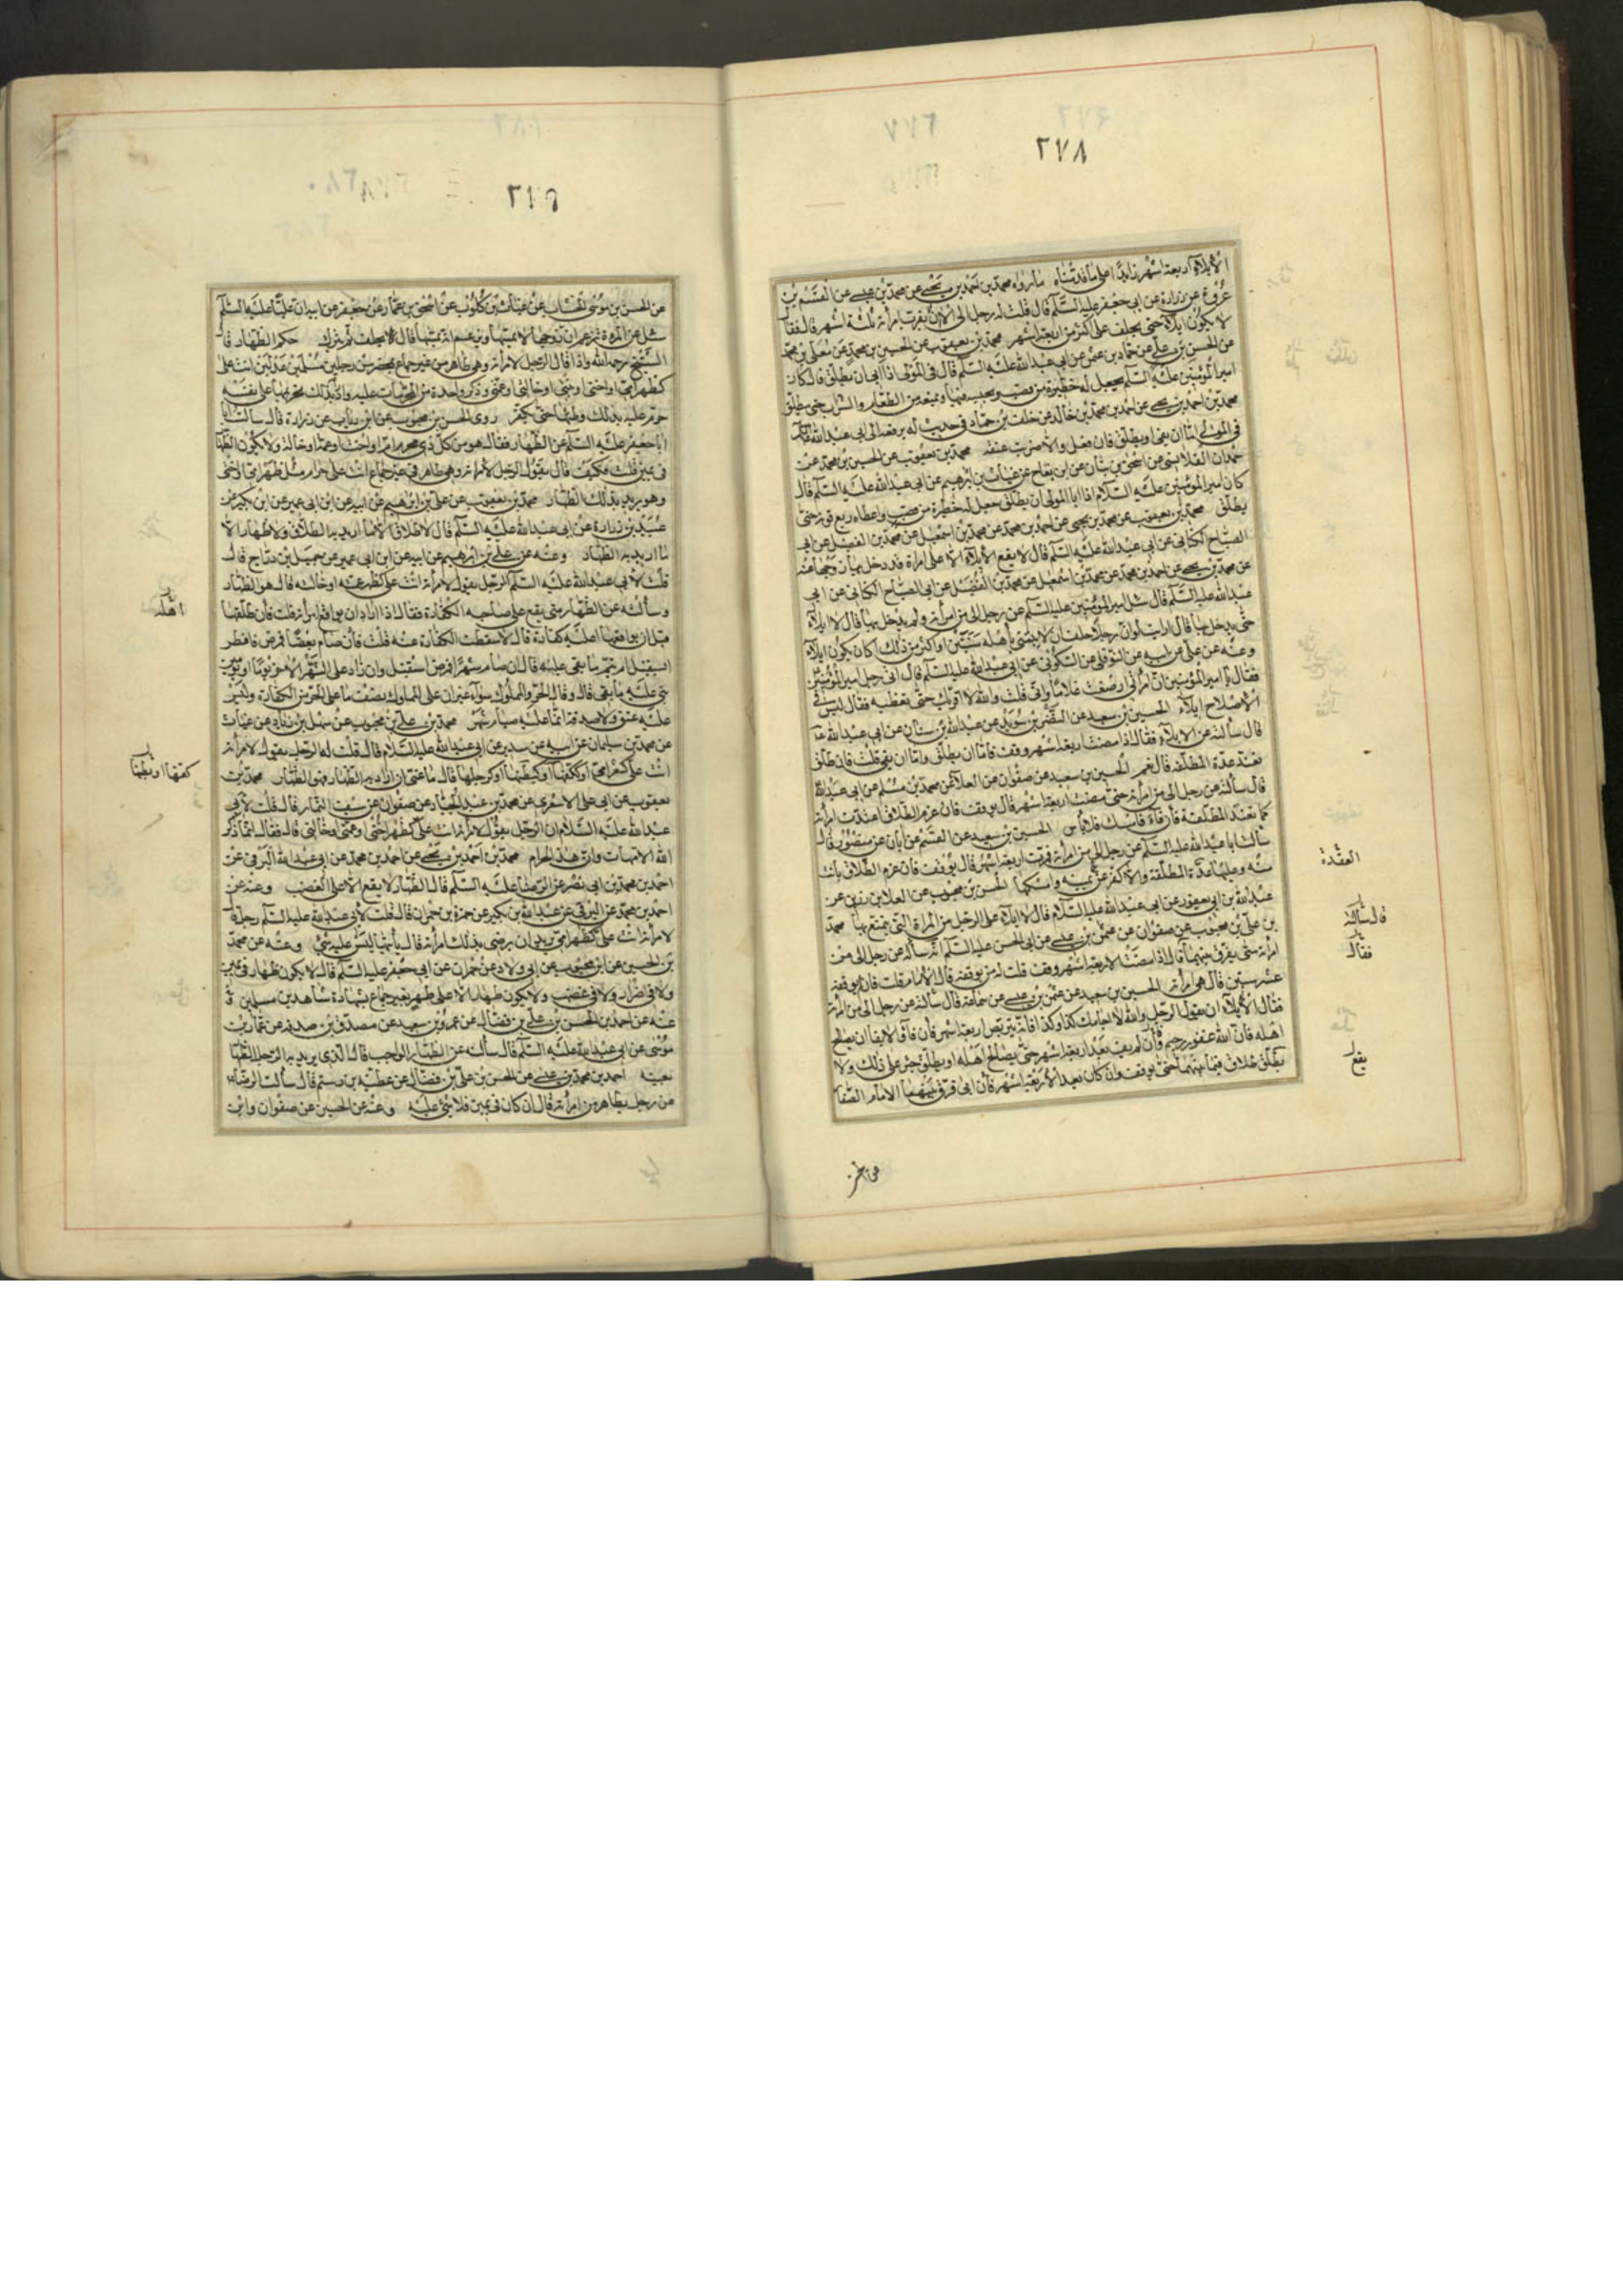 ٢٧٨
الايلاء اربعة اشهر زايدا على ما قدمناه ما رواه محمد بن احمد بن يحيى عن محمد بن عيسى عن القسم بن
عروة عن زرارة عن ابي جعفر عليه السلم قال قلت له رجل آلى ان لا يقرب امرأته ثلثة اشهر قال فقال
لا يكون ايلاء حتى يحلف على اكثر من اربعة اشهر محمد بن يعقوب عن الحسين بن محمد عن معلى بن محمد
عن الحسن بن علي عن حماد بن عثمن عن ابي عبد الله عليه السلم قال في المولى اذا ابى ان يطلق قال كان
امير المؤمنين عليه السلم يجعل له حظيرة من قصب ويحبسه فيها ويمنعه من الطعام والشراب حتى يطلق
محمد بن احمد بن يحيى عن احمد بن محمد بن خالد عن خلف بن حماد في حديث له يرفعه الى ابي عبد الله
في المولى اما ان يفئ او يطلق فان فعل والا ضربت عنقه محمد بن يعقوب عن الحسين بن محمد عن
حمدان القلانسي عن اسحق بن بنان عن ابن بقاح عن غياث بن ابرهيم عن ابي عبد الله عليه السلم قال
كان امير المؤمنين عليه السلام اذا ابا المولى ان يطلق جعل له حظيرة من قصب واعطاه ربع قوته حتى
يطلق محمد بن يعقوب عن محمد بن يحيى عن احمد بن محمد عن محمد بن اسمعيل عن محمد بن الفضيل عن ابي
الصباح الكناني عن ابي عبد الله عليه السلم قال لا يقع الايلاء الا على امراة قد دخل بها زوجها عنه
عن محمد بن يحيى عن احمد بن محمد عن محمد بن اسمعيل عن محمد بن الفضيل عن ابي الصباح الكناني عن ابي
عبد الله عليه السلم قال سئل امير المؤمنين عليه السلم عن رجل آلى من امرأته ولم يدخل بها قال لا ايلاء
حتى يدخل بها قال ارايت لو ان رجلا حلف ان لا يبنى باهله سنتين او اكثر من ذلك اكان يكون ايلاء
وعنه عن علي عن ابيه عن النوفلي عن السكوني عن ابي عبد الله عليه السلم قال اتى رجل امير المؤمنين
فقال يا امير المؤمنين ان امرأتي ارضعت غلاما واني قلت والله لا اقربك حتى تفطميه فقال ليس في
الاصلاح ايلاء الحسين بن سعيد عن النضر بن سويد عن عبد الله بن سنان عن ابي عبد الله
قال سألته عن الايلاء فقال اذا مضت اربعة اشهر وقف فاما ان يطلق واما ان يفئ قلت فان طلق
تعتد عدة المطلقة قال نعم الحسين بن سعيد عن صفوان عن العلا عن محمد بن مسلم عن ابي عبد الله
قال سألته عن رجل آلى من امرأته حتى مضت اربعة اشهر قال يوقف فان عزم الطلاق اعتدت امرأته
كما تعتد المطلقة فان فاء فامسك فلا باس الحسين بن سعيد عن القسم عن ابان عن منصور قال
سالت ابا عبد الله عليه السلم عن رجل آلى من امرأته فمرت اربعة اشهر قال يوقف فان عزم الطلاق بانت
منه وعليها عدة المطلقة والا كفر عن يمينه وامسكها الحسن بن محبوب عن العلا بن رزين عن
عبد الله بن ابي يعفور عن ابي عبد الله عليه السلام قال لا ايلاء على الرجل من المراة التي يتمتع بها محمد
بن علي بن محبوب عن صفوان عن عثمن بن عيسى عن ابي الحسن عليه السلم انه سأله عن رجل آلى من
امرأته متى يفرق بينهما قال اذا مضت الاربعة اشهر وقف قلت له من يوقفه قال الامام قلت فان لم يوقفه
عشر سنين قال هي امرأته الحسين بن سعيد عن عثمن بن عيسى عن سماعة قال سألته عن رجل آلى من امرأته
فقال الايلاء ان يقول الرجل والله لا اجامعك كذا وكذا فانه يتربص اربعة اشهر فان فاء والايفا ان يصالح
اهله فان الله غفور رحيم فان لم يفئ بعد اربعة اشهر حتى يصالح اهله او يطلق جبر على ذلك ولا
يقع طلاق فيما بينهما حتى يوقف وان كان بعد الاربعة اشهر فان ابى فرق بينهما الامام الصفار
العقدة
قال سألته
فقال
يقع
عن الحسن
٢٧٩
عن الحسن بن موسى الخشاب عن غياث بن كلوب عن اسحق بن عمار عن جعفر عن ابيه ان عليا عليه السلم
سئل عن المرءة تزعم ان زوجها لا يمسها ويزعم انه يمسها قال لا يحلف ثم يترك حكم الظهار قال
الشيخ رحمه الله واذا قال الرجل لامرأته وهي طاهر من غير جماع بمحضر من رجلين مسلمين عدلين انت علي
كظهر امي او اختي او بنتي او خالتي او عمتي وذكر واحدة من المحرمات عليه واراد بذلك تحريمها على نفسه
حرم عليه بذلك وطئها حتى يكفر روى الحسن بن محبوب عن ابن رئاب عن زرارة قال سالت
ابا جعفر عليه السلم عن الظهار فقال هو من كل ذي محرم ام او اخت او عمة او خالة ولا يكون الظهار
في يمين قلت فكيف قال يقول الرجل لامرأته وهي طاهر في غير جماع انت علي حرام مثل ظهر امي او اختي
وهو يريد بذلك الظهار محمد بن يعقوب عن علي بن ابرهيم عن ابيه عن ابن ابي عمير عن ابن بكير عن
عبيد بن زرارة عن ابي عبد الله عليه السلم قال لا طلاق الا ما اريد به الطلاق ولا ظهار الا
ما اريد به الظهار وعنه عن علي بن ابرهيم عن ابيه عن ابن ابي عمير عن جميل بن دراج قال
قلت لابي عبد الله عليه السلم الرجل يقول لامرأته انت علي كظهر عمته او خالته قال هو الظهار
وسألته عن الظهار متى يقع على صاحبه الكفارة فقال اذا اراد ان يواقع امرأته قلت فان طلقها
قبل ان يواقعها اعليه كفارة قال لا سقطت الكفارة عنه قلت فان صام بعضا فمرض فافطر
ايستقبل ام يتم ما بقي عليه قال ان صام شهرا فمرض استقبل وان زاد على الشهر الاخر يوما او يومين
بنى عليه ما بقي قال وقال الحر والمملوك سواء غير ان على المملوك نصف ما على الحر من الكفارة وليس
عليه عتق ولا صدقة انما عليه صيام شهر محمد بن علي بن محبوب عن سهل بن زياد عن غياث
عن محمد بن سليمان عن ابيه عن سدير عن ابي عبد الله عليه السلام قال قلت له الرجل يقول لامرأته
انت علي كشعر امي او ككفها او كبطنها او كرجلها قال ما عنى ان اراد به الظهار فهو الظهار محمد بن
يعقوب عن ابي علي الاشعري عن محمد بن عبد الجبار عن صفوان عن سيف التمار قال قلت لابي
عبد الله عليه السلام ان الرجل يقول لامرأته انت علي كظهر اختي او عمتي او خالتي قال فقال انما ذكر
الله الامهات وان هذا لحرام محمد بن احمد بن يحيى عن احمد بن محمد عن ابي عبد الله البرقي عن
احمد بن محمد بن ابي نصر عن الرضا عليه السلم قال الظهار لا يقع الا على الغضب وعنه عن
احمد بن محمد عن البرقي عن عبد الله بن بكير عن حمزة بن حمران قال قلت لابي عبد الله عليه السلم رجل قال
لامرأته انت علي كظهر امي يريد ان يرضي بذلك امرأته قال يأتيها ليس عليه شئ وعنه عن محمد
بن الحسين عن ابن محبوب عن ابي ولاد عن حمران عن ابي جعفر عليه السلم قال لا يكون ظهار في يمين
ولا في اضرار ولا في غضب ولا يكون ظهار الا على طهر بغير جماع بشهادة شاهدين مسلمين
عنه عن احمد بن الحسن بن علي بن فضال عن عمرو بن سعيد عن مصدق بن صدقه عن عمار بن
موسى عن ابي عبد الله عليه السلم قال سألته عن الظهار الواجب قال الذي يريد به الرجل الظهار
بعينه احمد بن محمد بن عيسى عن الحسن بن علي بن فضال عن عطية بن رستم قال سالت الرضا
عن رجل يظاهر من امرأته قال ان كان في يمين فلا شئ عليه وعنه عن الحسين عن صفوان وابن
اهله
كفها او بطنها